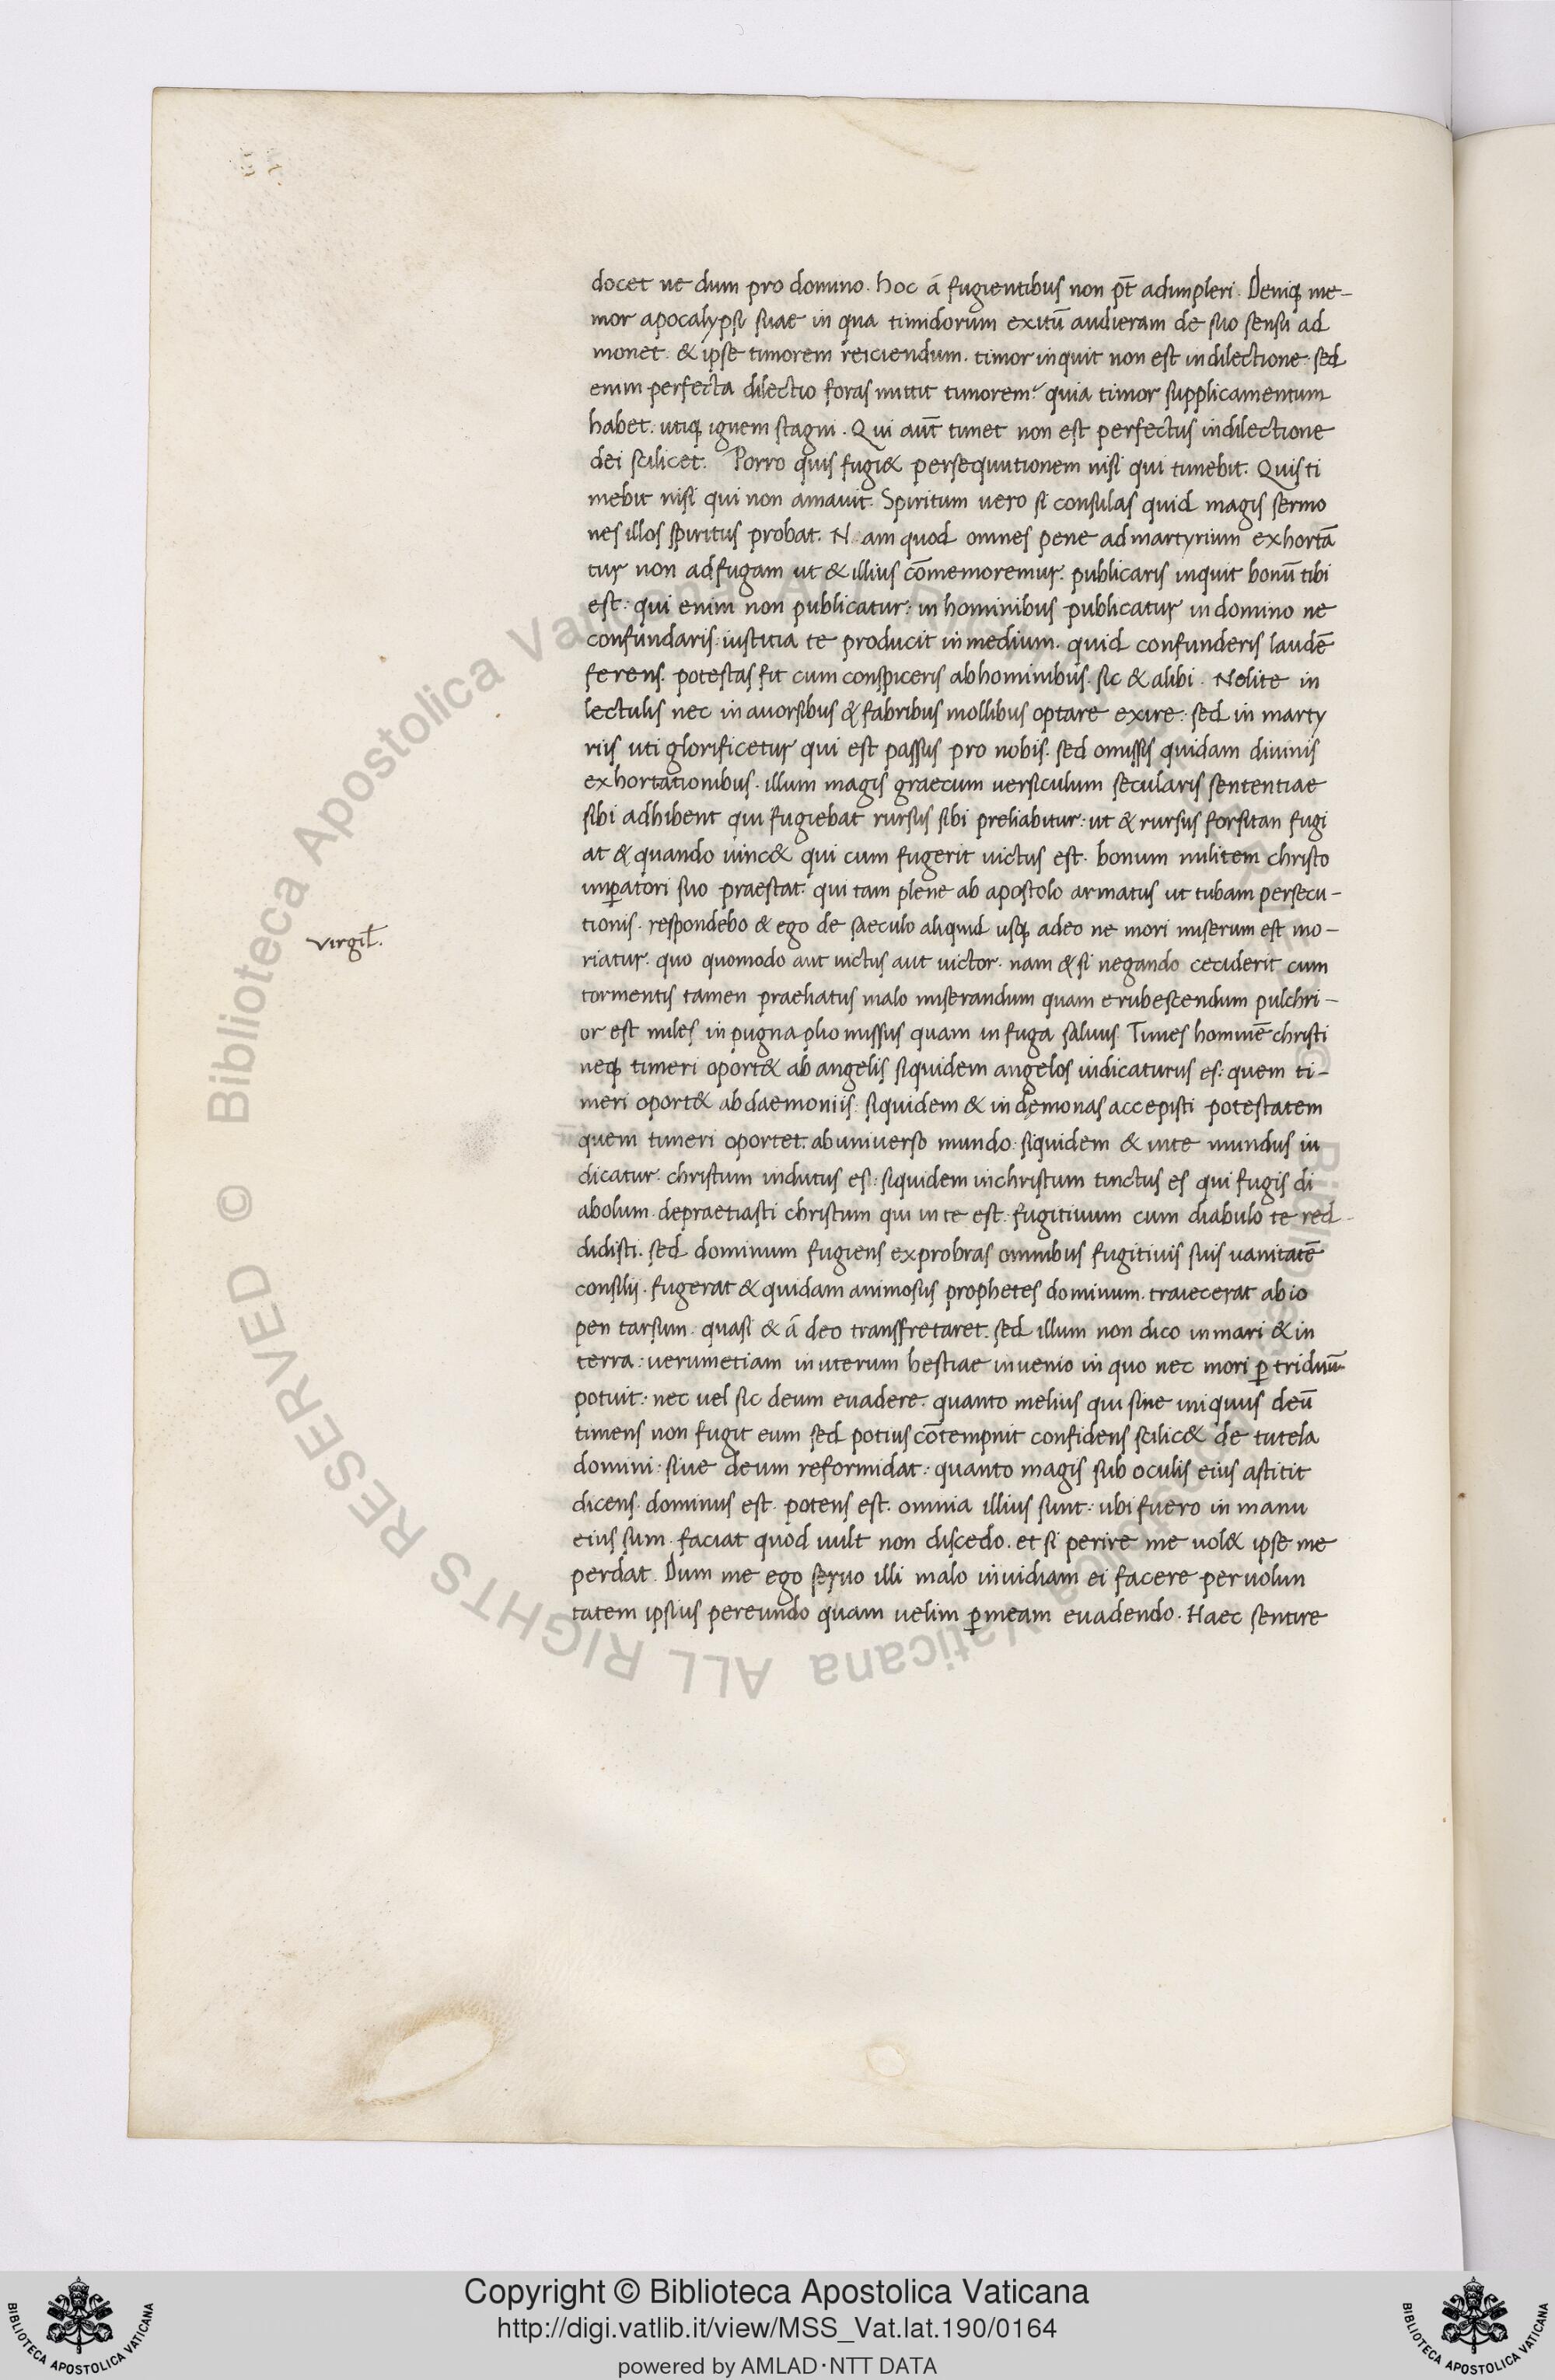 docet ne dum pro domino. hoc á fugientibus non pt̄ adimpleri. Deniq; me-
mor apocalypsi suae in qua timidorum exitū audieram de suo sensu ad
monet. & ipse timorem reiciendum. timor inquit non est indilectione: sed
enim perfecta dilectio foras mittit timorem: quia timor supplicamentum
habet. utiq; ignem stagni. Qui aut̄ timet non est perfectus indilectione
dei scilicet. Porro quis fugi& persequutionem nisi qui timebit. Quis ti
mebit nisi qui non amauit. Spiritum uero si consulas quid magis sermo
nes illos spiritus probat. Nam quod omnes pene admartyrium exhortā
tur non adfugam ut & illius cōmemoremur. publicaris inquit bonū tibi
est: qui enim non publicatur: in hominibus publicatur indomino ne
confundaris: iustitia te producit inmedium. quid confunderis laudē
ferens. potestas fit cum conspiceris abhominibus. sic & alibi. Nolite in
lectulis nec inauorsibus & fabribus mollibus optare exire: sed in marty
riis uti glorificetur qui est passus pro nobis. sed omissis quidam diuinis
exhortationibus. illum magis graecum uersiculum secularis sententiae
sibi adhibent qui fugiebat rursus sibi preliabitur: ut & rursus forsitan fugi
at & quando uinc& qui cum fugerit uictus est. bonum militem christo
imꝑatori suo praestat. qui tam plene ab apostolo armatus ut tubam persecu-
tionis. respondebo & ego de saeculo aliquid usq; adeo ne mori miserum est mo-
virgil̄.
riatur. quo quomodo aut uictus aut uictor. nam & si negando ceciderit cum
tormentis tamen praeliatus malo miserandum quam erubescendum pulchri-
or est miles inpugna plio missus quam in fuga saluus Times hominē christi
neq; timeri oport& ab angelis siquidem angelos iudicaturus es: quem ti-
meri oport& abdaemoniis: siquidem & in dęmonas accepisti potestatem
quem timeri oportet. abuniuerso mundo: siquidem & inte mundus iu
dicatur. christum indutus es: siquidem inchristum tinctus es qui fugis di
abolum. depraetiasti christum qui in te est. fugitiuum cum diabulo te red-
didisti. sed dominum fugiens exprobras omnibus fugitiuis suis uanitatē
consilij. fugerat & quidam animosus prophetes dominum. traiecerat abio
pen tarsum. quasi & á deo transfretaret. sed illum non dico inmari & in
terra: uerumetiam inuterum bestiae inuenio in quo nec mori ꝑ triduū
potuit: nec uel sic deum euadere. quanto melius qui siue iniquus deū
timens non fugit eum sed potius cōtempnit confidens scilic& de tutela
domini: siue deum reformidat: quanto magis sub oculis eius astitit
dicens. dominus est. potens est. omnia illius sunt: ubi fuero in manu
eius sum. faciat quod uult non discedo. et si perire me uol& ipse me
perdat. Dum me ego seruo illi malo inuidiam ei facere per uolun
tatem ipsius pereundo quam uelim ꝑmeam euadendo. Haec sentire
Copyright © Biblioteca Apostolica Vaticana
http://digi.vatlib.it/view/MSS_Vat.lat.190/0164
powered by AMLAD·NTT DATA